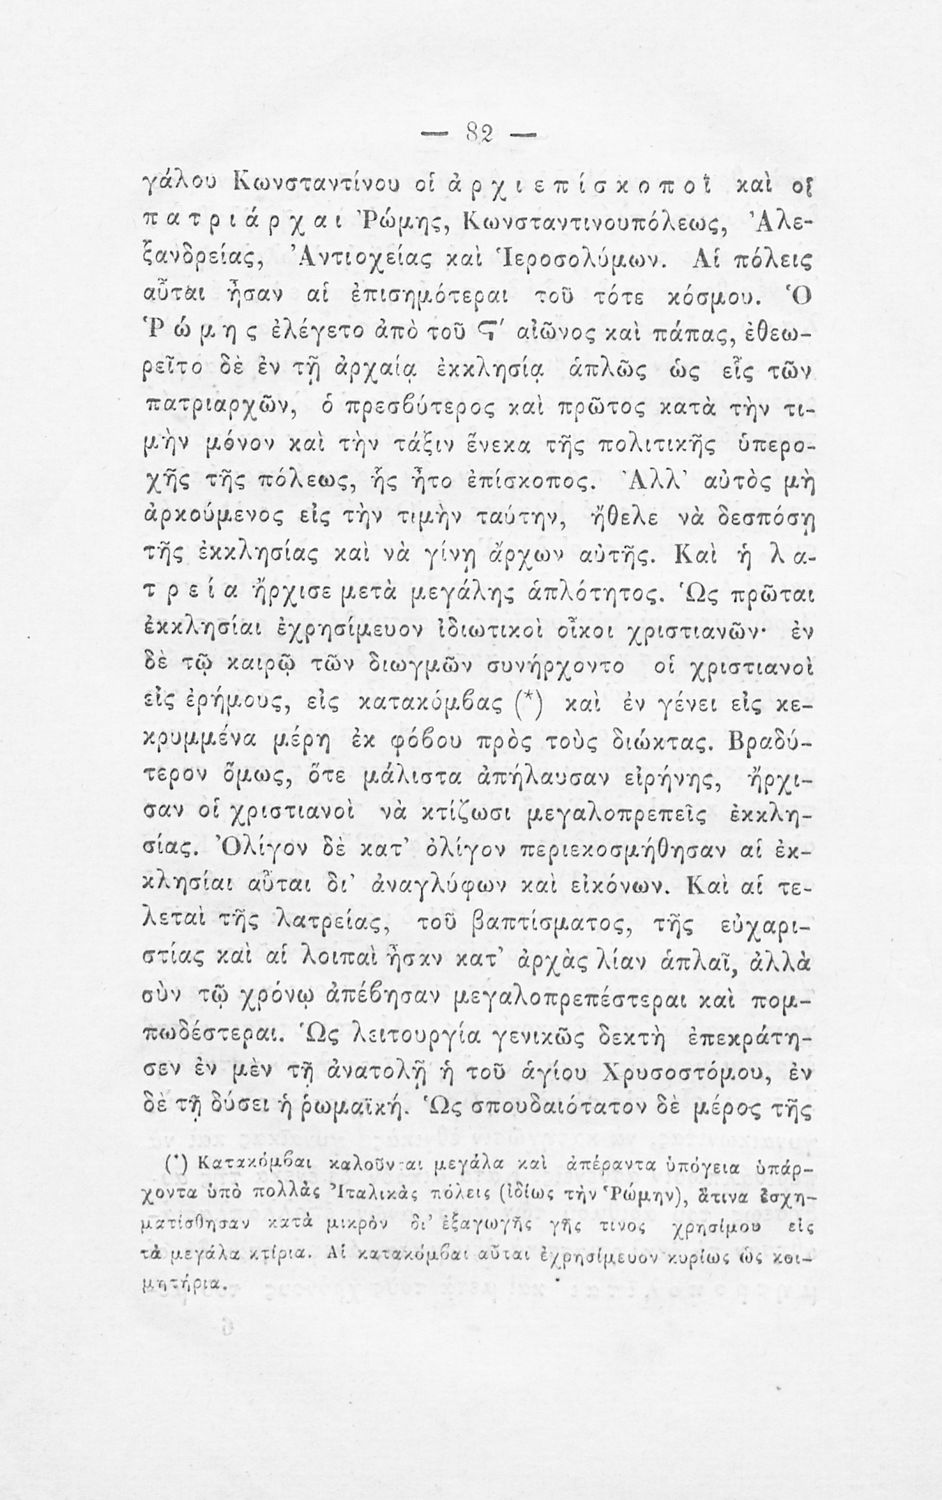 — 82 —
γάλου Κωνσταντίνου οἱ ἀρχιεπίσκοποὶ καὶ οἱ
πατριάρχαι Ῥώμης, Κωνσταντινουπόλεως, Ἀλε-
ξανδρείας, Ἀντιοχείας καὶ Ἱεροσολύμων. Αἱ πόλεις
αὗται ἦσαν αἱ ἐπισημότεραι τοῦ τότε κόσμου. Ὁ
Ῥώμης ἐλέγετο ἀπὸ τοῦ Ϛ′ αἰῶνος καὶ πάπας, ἐθεω-
ρεῖτο δὲ ἐν τῇ ἀρχαίᾳ ἐκκλησίᾳ ἁπλῶς ὡς εἷς τῶν
πατριαρχῶν, ὁ πρεσβύτερος καὶ πρῶτος κατὰ τὴν τι-
μὴν μόνον καὶ τὴν τάξιν ἕνεκα τῆς πολιτικῆς ὑπερο-
χῆς τῆς πόλεως, ἧς ἦτο ἐπίσκοπος. Ἀλλ’ αὐτὸς μὴ
ἀρκούμενος εἰς τὴν τιμὴν ταύτην, ἤθελε νὰ δεσπόσῃ
τῆς ἐκκλησίας καὶ νὰ γίνῃ ἄρχων αὐτῆς. Καὶ ἡ λα-
τρεία ἤρχισε μετὰ μεγάλης ἁπλότητος. Ὡς πρῶται
ἐκκλησίαι ἐχρησίμευον ἰδιωτικοὶ οἶκοι χριστιανῶν· ἐν
δὲ τῷ καιρῷ τῶν διωγμῶν συνήρχοντο οἱ χριστιανοὶ
εἰς ἐρήμους, εἰς κατακόμβας (*) καὶ ἐν γένει εἰς κε-
κρυμμένα μέρη ἐκ φόβου πρὸς τοὺς διώκτας. Βραδύ-
τερον ὅμως, ὅτε μάλιστα ἀπήλαυσαν εἰρήνης, ἤρχι-
σαν οἱ χριστιανοὶ νὰ κτίζωσι μεγαλοπρεπεῖς ἐκκλη-
σίας. Ὀλίγον δὲ κατ’ ὀλίγον περιεκοσμήθησαν αἱ ἐκ-
κλησίαι αὗται δι’ ἀναγλύφων καὶ εἰκόνων. Καὶ αἱ τε-
λεταὶ τῆς λατρείας, τοῦ βαπτίσματος, τῆς εὐχαρι-
στίας καὶ αἱ λοιπαὶ ἦσαν κατ’ ἀρχὰς λίαν ἁπλαῖ, ἀλλὰ
σὺν τῷ χρόνῳ ἀπέβησαν μεγαλοπρεπέστεραι καὶ πομ-
πωδέστεραι. Ὡς λειτουργία γενικῶς δεκτὴ ἐπεκράτη-
σεν ἐν μὲν τῇ ἀνατολῇ ἡ τοῦ ἁγίου Χρυσοστόμου, ἐν
δὲ τῇ δύσει ἡ ῥωμαϊκή. Ὡς σπουδαιότατον δὲ μέρος τῆς
(*) Κατακόμβαι καλοῦνται μεγάλα καὶ ἀπέραντα ὑπόγεια ὑπάρ-
χοντα ὑπὸ πολλὰς Ἰταλικὰς πόλεις (ἰδίως τὴν Ῥώμην), ἅτινα ἐσχη-
ματίσθησαν κατὰ μικρὸν δι’ ἐξαγωγῆς γῆς τινος χρησίμου εἰς
τὰ μεγάλα κτίρια. Αἱ κατακόμβαι αὗται ἐχρησίμευον κυρίως ὡς κοι-
μητήρια.